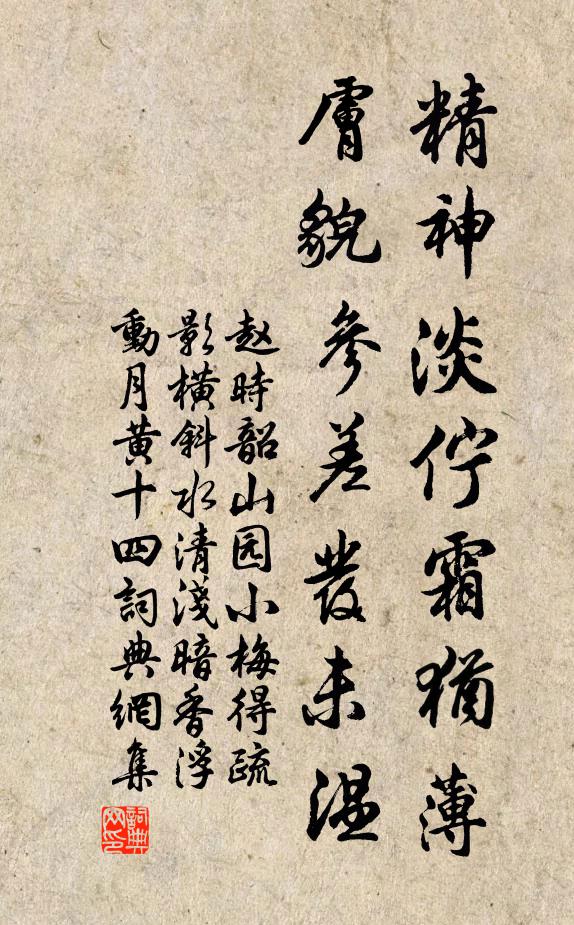 精神淡佇霜猶薄
膚貌參差發未温
赵時韶山园小梅得疏
影橫斜水清淺暗香浮
動月黃十四詞典網集
詞典网印